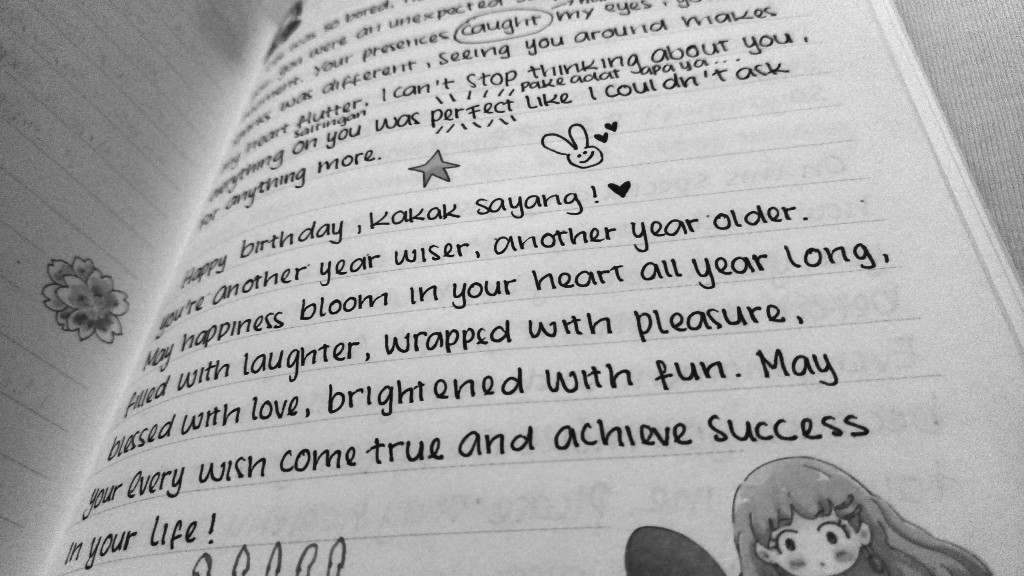 was so bored,
you were an unexpected
your presences caught my eyes,
was different, seeing you around makes
my heart flutter, I can't stop thinking about you,
saingan pake adat apa ya...
everything on you was perfect like I couldn't ask
for anything more.
Happy birthday, kakak sayang!
you're another year wiser, another year older.
May happiness bloom in your heart all year long,
filled with laughter, wrapped with pleasure,
blessed with love, brightened with fun. May
your every wish come true and achieve success
in your life!